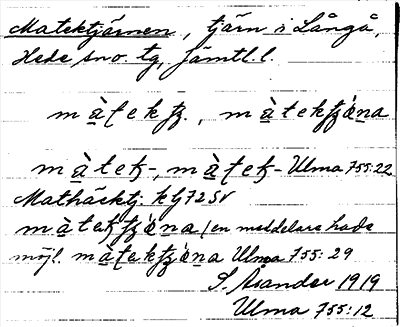 Matektjärnen, tjärn i Långå,
Hede sno. tg, Jämtl. l.
mà̱tekʈʒ., mà̱tekʈʒǝ́na
mà̱teʈ-, mà̱teʈ- Ulma 755:22
Mathäcktj. kbl 72 SV
mà̱tekʈʒǝ́na (en meddelare hade
möjl. mà̱tekʈʒǝ́na Ulma 755:29
S. Åsander 1919
Ulma 755:12